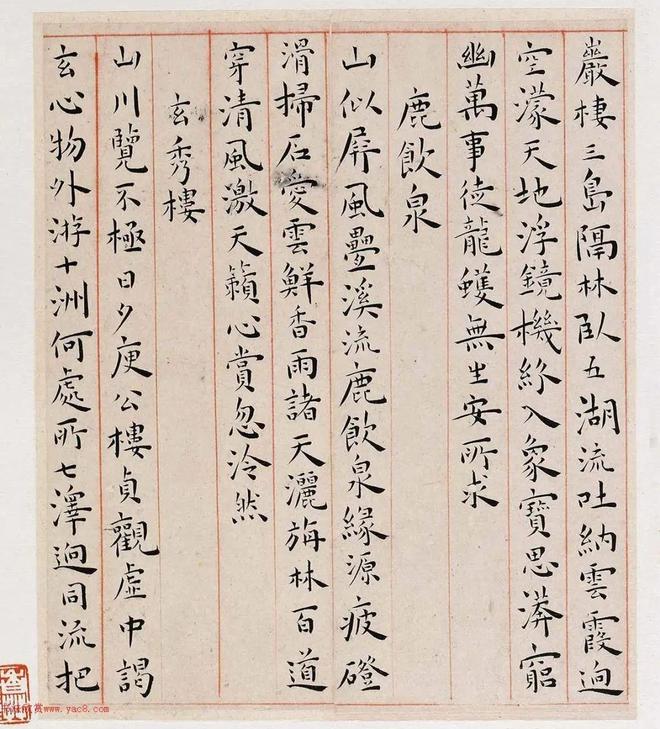 巖棲三島隔林臥五湖流吐納雲霞迥
空濛天地浮鏡機終入象寶思漭窮
幽萬事徒龍蠖無生安所求
鹿飲泉
山似屏風疊溪流鹿飲泉緣源疲磴
滑掃石愛雲鮮香雨諸天灑旃林百道
穿清風激天籟心賞忽泠然
玄秀樓
山川覽不極日夕庾公樓貞觀虛中謁
玄心物外游十洲何處所七澤迥同流把
赏www.yac8.com